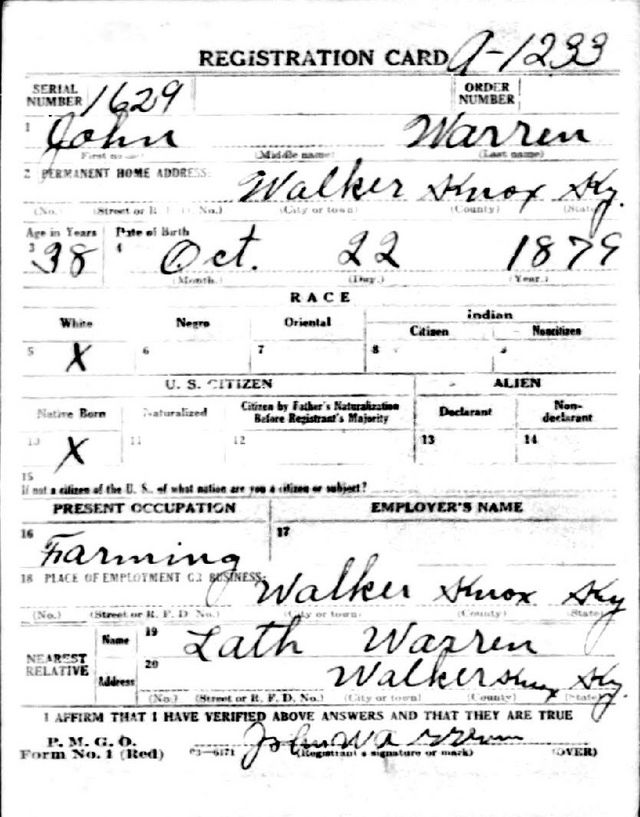 REGISTRATION CARD A-1233
SERIAL NUMBER 1629 ORDER NUMBER
1 John Warren
(First name) (Middle name) (Last name)
2 PERMANENT HOME ADDRESS: Walker Knox Ky.
(No.) (Street or R. F. D. No.) (City or town) (County) (State)
Age in Years Date of Birth
3 38 4 Oct. 22 1879
(Month.) (Day.) (Year.)
RACE
White Negro Oriental Indian
Citizen Noncitizen
5 X 6 7 8 9
U. S. CITIZEN ALIEN
Native Born Naturalized Citizen by Father's Naturalization Before Registrant's Majority Declarant Non-declarant
10 X 11 12 13 14
15
If not a citizen of the U. S., of what nation are you a citizen or subject?
PRESENT OCCUPATION EMPLOYER'S NAME
16 Farming 17
18 PLACE OF EMPLOYMENT OR BUSINESS: Walker Knox Ky
(No.) (Street or R. F. D. No.) (City or town) (County) (State)
NEAREST RELATIVE Name 19 Lath Warren
Address 20 Walker Knox Ky.
(No.) (Street or R. F. D. No.) (City or town) (County) (State)
I AFFIRM THAT I HAVE VERIFIED ABOVE ANSWERS AND THAT THEY ARE TRUE
P. M. G. O.
Form No. 1 (Red) 03—6171 John Warren
(Registrant's signature or mark) (OVER)